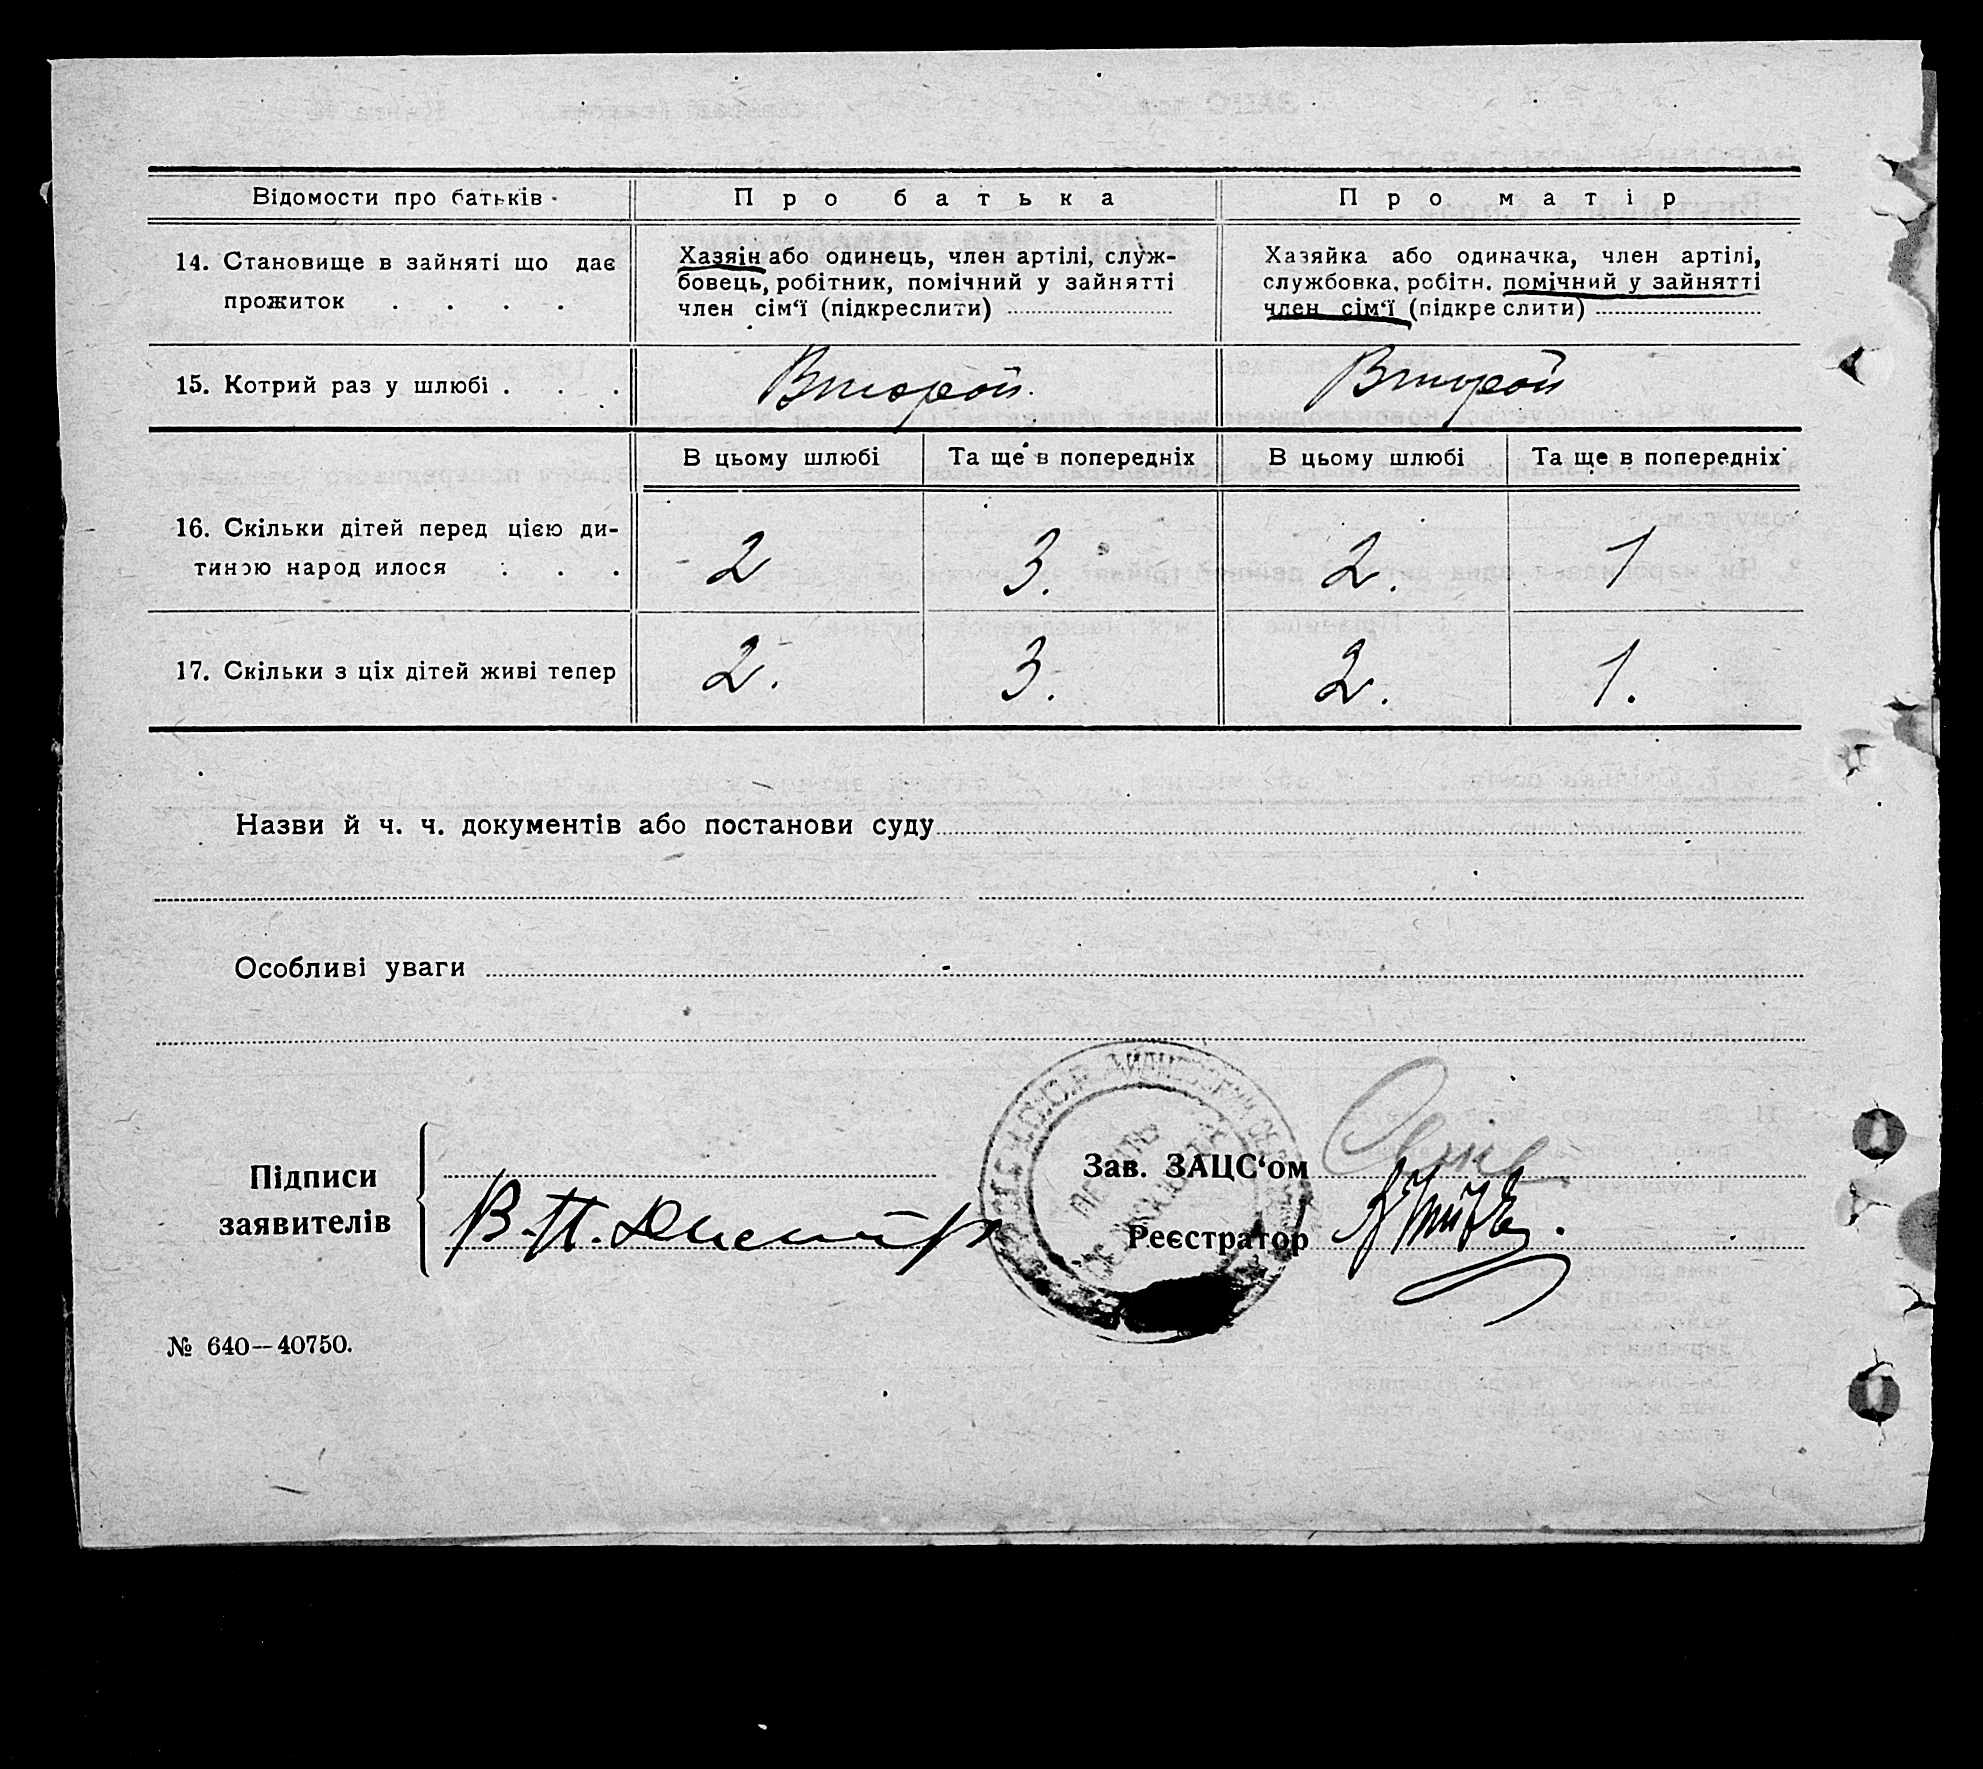 Відомости про батьків
Про батька
Про матір
14. Становище в зайняті що дає
прожиток . . . .
Хазяїн або одинець, член артілі, служ-
бовець, робітник, помічний у зайнятті
член сім‘ї (підкреслити)
Хазяйка або одиначка, член артілі,
службовка, робітн. помічний у зайнятті
член сім‘ї (підкреслити)
15. Котрий раз у шлюбі . . .
Второй.
Второй
В цьому шлюбі
Та ще в попередніх
В цьому шлюбі
Та ще в попередніх
16. Скільки дітей перед цією ди-
тиною народилося . . .
2
3.
2.
1
17. Скільки з ціх дітей живі тепер
2.
3.
2.
1.
Назви й ч. ч. документів або постанови суду
Особливі уваги
Підписи
заявителів
В. П.
Зав. ЗАЦС‘ом
Реєстратор
№ 640—40750.